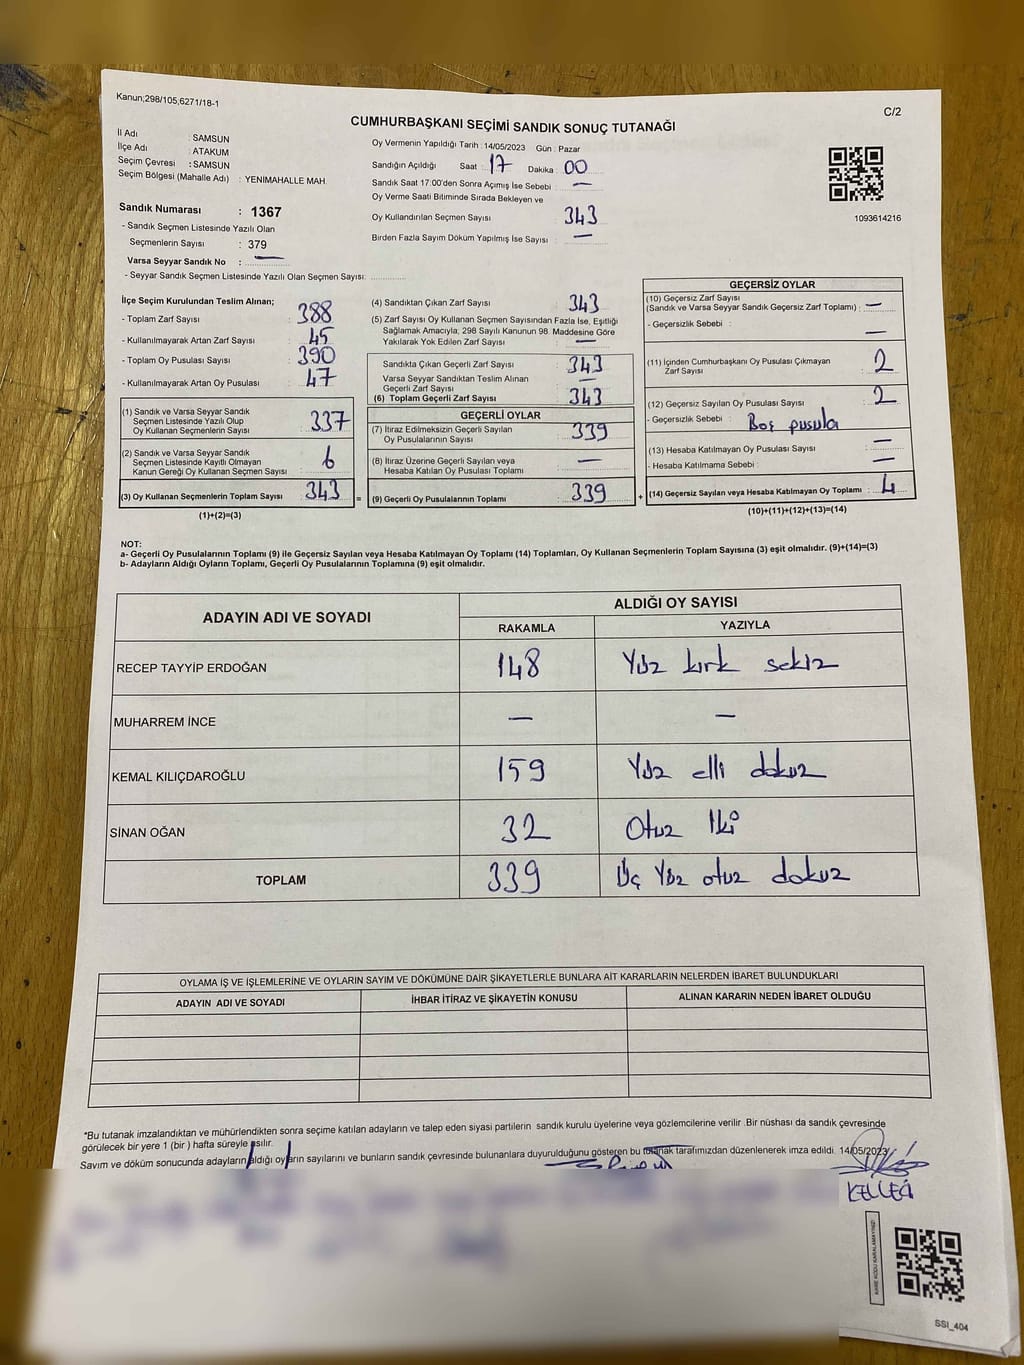 Kanun;298/105,6271/18-1
C/2
CUMHURBAŞKANI SEÇİMİ SANDIK SONUÇ TUTANAĞI
İl Adı : SAMSUN
İlçe Adı : ATAKUM
Seçim Çevresi : SAMSUN
Seçim Bölgesi (Mahalle Adı) : YENIMAHALLE MAH.
Sandık Numarası : 1367
- Sandık Seçmen Listesinde Yazılı Olan
Seçmenlerin Sayısı : 379
Varsa Seyyar Sandık No : —
- Seyyar Sandık Seçmen Listesinde Yazılı Olan Seçmen Sayısı:
Oy Vermenin Yapıldığı Tarih : 14/05/2023 Gün : Pazar
Sandığın Açıldığı Saat : 17 Dakika : 00
Sandık Saat 17:00'den Sonra Açımış İse Sebebi : —
Oy Verme Saati Bitiminde Sırada Bekleyen ve
Oy Kullandırılan Seçmen Sayısı : 343
Birden Fazla Sayım Döküm Yapılmış İse Sayısı : —
1093614216
İlçe Seçim Kurulundan Teslim Alınan;
- Toplam Zarf Sayısı : 388
- Kullanılmayarak Artan Zarf Sayısı : 45
- Toplam Oy Pusulası Sayısı : 390
- Kullanılmayarak Artan Oy Pusulası : 47
(1) Sandık ve Varsa Seyyar Sandık
Seçmen Listesinde Yazılı Olup
Oy Kullanan Seçmenlerin Sayısı : 337
(2) Sandık ve Varsa Seyyar Sandık
Seçmen Listesinde Kayıtlı Olmayan
Kanun Gereği Oy Kullanan Seçmen Sayısı : 6
(3) Oy Kullanan Seçmenlerin Toplam Sayısı : 343 =
(1)+(2)=(3)
(4) Sandıktan Çıkan Zarf Sayısı : 343
(5) Zarf Sayısı Oy Kullanan Seçmen Sayısından Fazla İse, Eşitliği
Sağlamak Amacıyla; 298 Sayılı Kanunun 98. Maddesine Göre
Yakılarak Yok Edilen Zarf Sayısı : —
Sandıkta Çıkan Geçerli Zarf Sayısı : 343
Varsa Seyyar Sandıktan Teslim Alınan
Geçerli Zarf Sayısı : —
(6) Toplam Geçerli Zarf Sayısı : 343
GEÇERLİ OYLAR
(7) İtiraz Edilmeksizin Geçerli Sayılan
Oy Pusulalarının Sayısı : 339
(8) İtiraz Üzerine Geçerli Sayılan veya
Hesaba Katılan Oy Pusulası Toplamı : —
(9) Geçerli Oy Pusulalarının Toplamı : 339 +
GEÇERSİZ OYLAR
(10) Geçersiz Zarf Sayısı
(Sandık ve Varsa Seyyar Sandık Geçersiz Zarf Toplamı) : —
- Geçersizlik Sebebi : —
(11) İçinden Cumhurbaşkanı Oy Pusulası Çıkmayan
Zarf Sayısı : 2
(12) Geçersiz Sayılan Oy Pusulası Sayısı : 2
- Geçersizlik Sebebi : Boş pusula
(13) Hesaba Katılmayan Oy Pusulası Sayısı : —
- Hesaba Katılmama Sebebi : —
(14) Geçersiz Sayılan veya Hesaba Katılmayan Oy Toplamı : 4
(10)+(11)+(12)+(13)=(14)
NOT:
a- Geçerli Oy Pusulalarının Toplamı (9) ile Geçersiz Sayılan veya Hesaba Katılmayan Oy Toplamı (14) Toplamları, Oy Kullanan Seçmenlerin Toplam Sayısına (3) eşit olmalıdır. (9)+(14)=(3)
b- Adayların Aldığı Oyların Toplamı, Geçerli Oy Pusulalarının Toplamına (9) eşit olmalıdır.
ADAYIN ADI VE SOYADI
ALDIĞI OY SAYISI
RAKAMLA YAZIYLA
RECEP TAYYİP ERDOĞAN 148 Yüz kırk sekiz
MUHARREM İNCE — —
KEMAL KILIÇDAROĞLU 159 Yüz elli dokuz
SİNAN OĞAN 32 Otuz İki
TOPLAM 339 Üç Yüz otuz dokuz
OYLAMA İŞ VE İŞLEMLERİNE VE OYLARIN SAYIM VE DÖKÜMÜNE DAİR ŞİKAYETLERLE BUNLARA AİT KARARLARIN NELERDEN İBARET BULUNDUKLARI
ADAYIN ADI VE SOYADI İHBAR İTİRAZ VE ŞİKAYETİN KONUSU ALINAN KARARIN NEDEN İBARET OLDUĞU
*Bu tutanak imzalandıktan ve mühürlendikten sonra seçime katılan adayların ve talep eden siyasi partilerin sandık kurulu üyelerine veya gözlemcilerine verilir .Bir nüshası da sandık çevresinde
görülecek bir yere 1 (bir ) hafta süreyle asılır.
Sayım ve döküm sonucunda adayların aldığı oyların sayılarını ve bunların sandık çevresinde bulunanlara duyurulduğunu gösteren bu tutanak tarafımızdan düzenlenerek imza edildi. 14/05/2023
KARE KODU KARALAMAYINIZ!
SSI_404